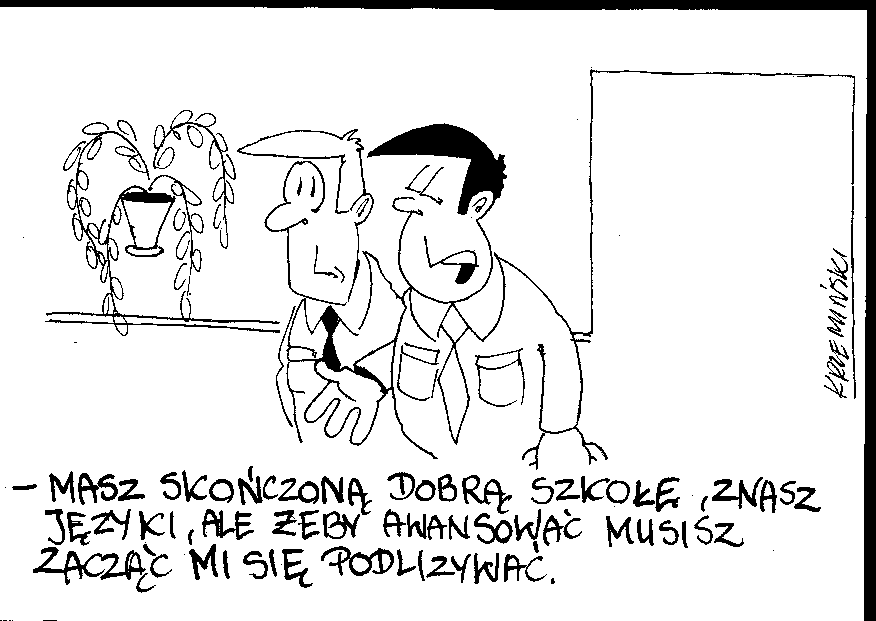 KRZEMIŃSKI
– MASZ SKOŃCZONĄ DOBRĄ SZKOŁĘ, ZNASZ
JĘZYKI, ALE ŻEBY AWANSOWAĆ MUSISZ
ZACZĄĆ MI SIĘ PODLIZYWAĆ.